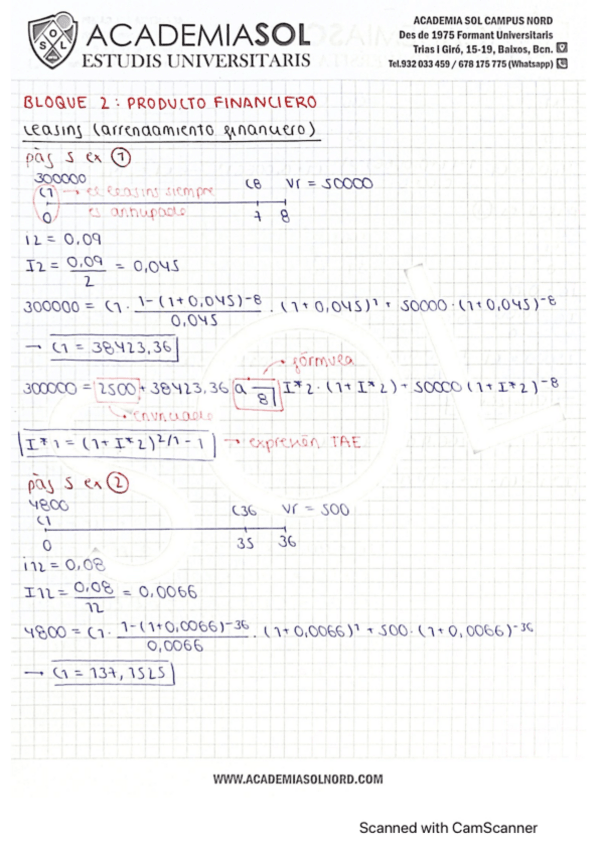 ACADEMIASOL
ESTUDIS UNIVERSITARIS
ACADEMIA SOL CAMPUS NORD
Des de 1975 Formant Universitaris
Trias I Giró, 15-19, Baixos, Bcn.
Tel.932 033 459 / 678 175 775 (Whatsapp)
BLOQUE 2: PRODUCTO FINANCIERO
Leasing (arrendamiento financiero)
pàg 5 ex 1
300000
C1 → el leasing siempre es anticipado
C8 Vr = 50000
0 7 8
i2 = 0,09
I2 = 0,09/2 = 0,045
300000 = C1 · 1-(1+0,045)-8/0,045 · (1+0,045)1 + 50000 · (1+0,045)-8
→ C1 = 38423,36
→ fórmula
300000 = 2500 + 38423,36 a 8 I*2 · (1+I*2) + 50000 (1+I*2)-8
→ enunciado
I*1 = (1+I*2)2/1 - 1 → expresión TAE
pàg 5 ex 2
4800
C1 C36 Vr = 500
0 35 36
i12 = 0,08
I12 = 0,08/12 = 0,0066
4800 = C1 · 1-(1+0,0066)-36/0,0066 · (1+0,0066)1 + 500 · (1+0,0066)-36
→ C1 = 137,1525
WWW.ACADEMIASOLNORD.COM
Scanned with CamScanner